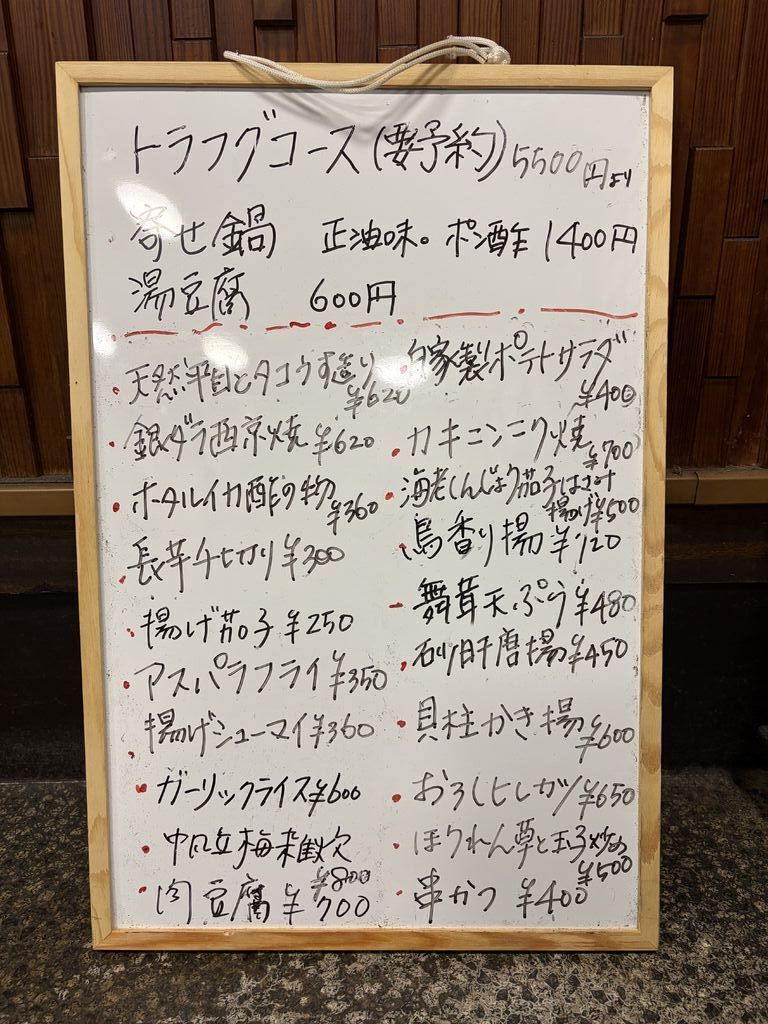 トラフグコース(要予約)5500円より
寄せ鍋 正油味。ポン酢 1400円
湯豆腐 600円
・天然平目とタコうす造り
¥620
・銀ダラ西京焼 ¥620
・ホタルイカ酢の物
¥360
・長芋千切り ¥300
・揚げ茄子 ¥250
・アスパラフライ ¥350
・揚げシューマイ ¥360
・ガーリックライス ¥600
・中口 梅雑炊
¥800
・肉豆腐 ¥700
・自家製ポテトサラダ
¥400
・カキニンニク焼
¥700
・海老しんじょう茄子はさみ
揚げ ¥500
・鳥香り揚 ¥720
- 舞茸天ぷら ¥480
・砂肝唐揚 ¥450
・貝柱かき揚
¥600
・おろしヒレカツ ¥650
・ほうれん草と玉子炒め
¥500
・串かつ ¥400